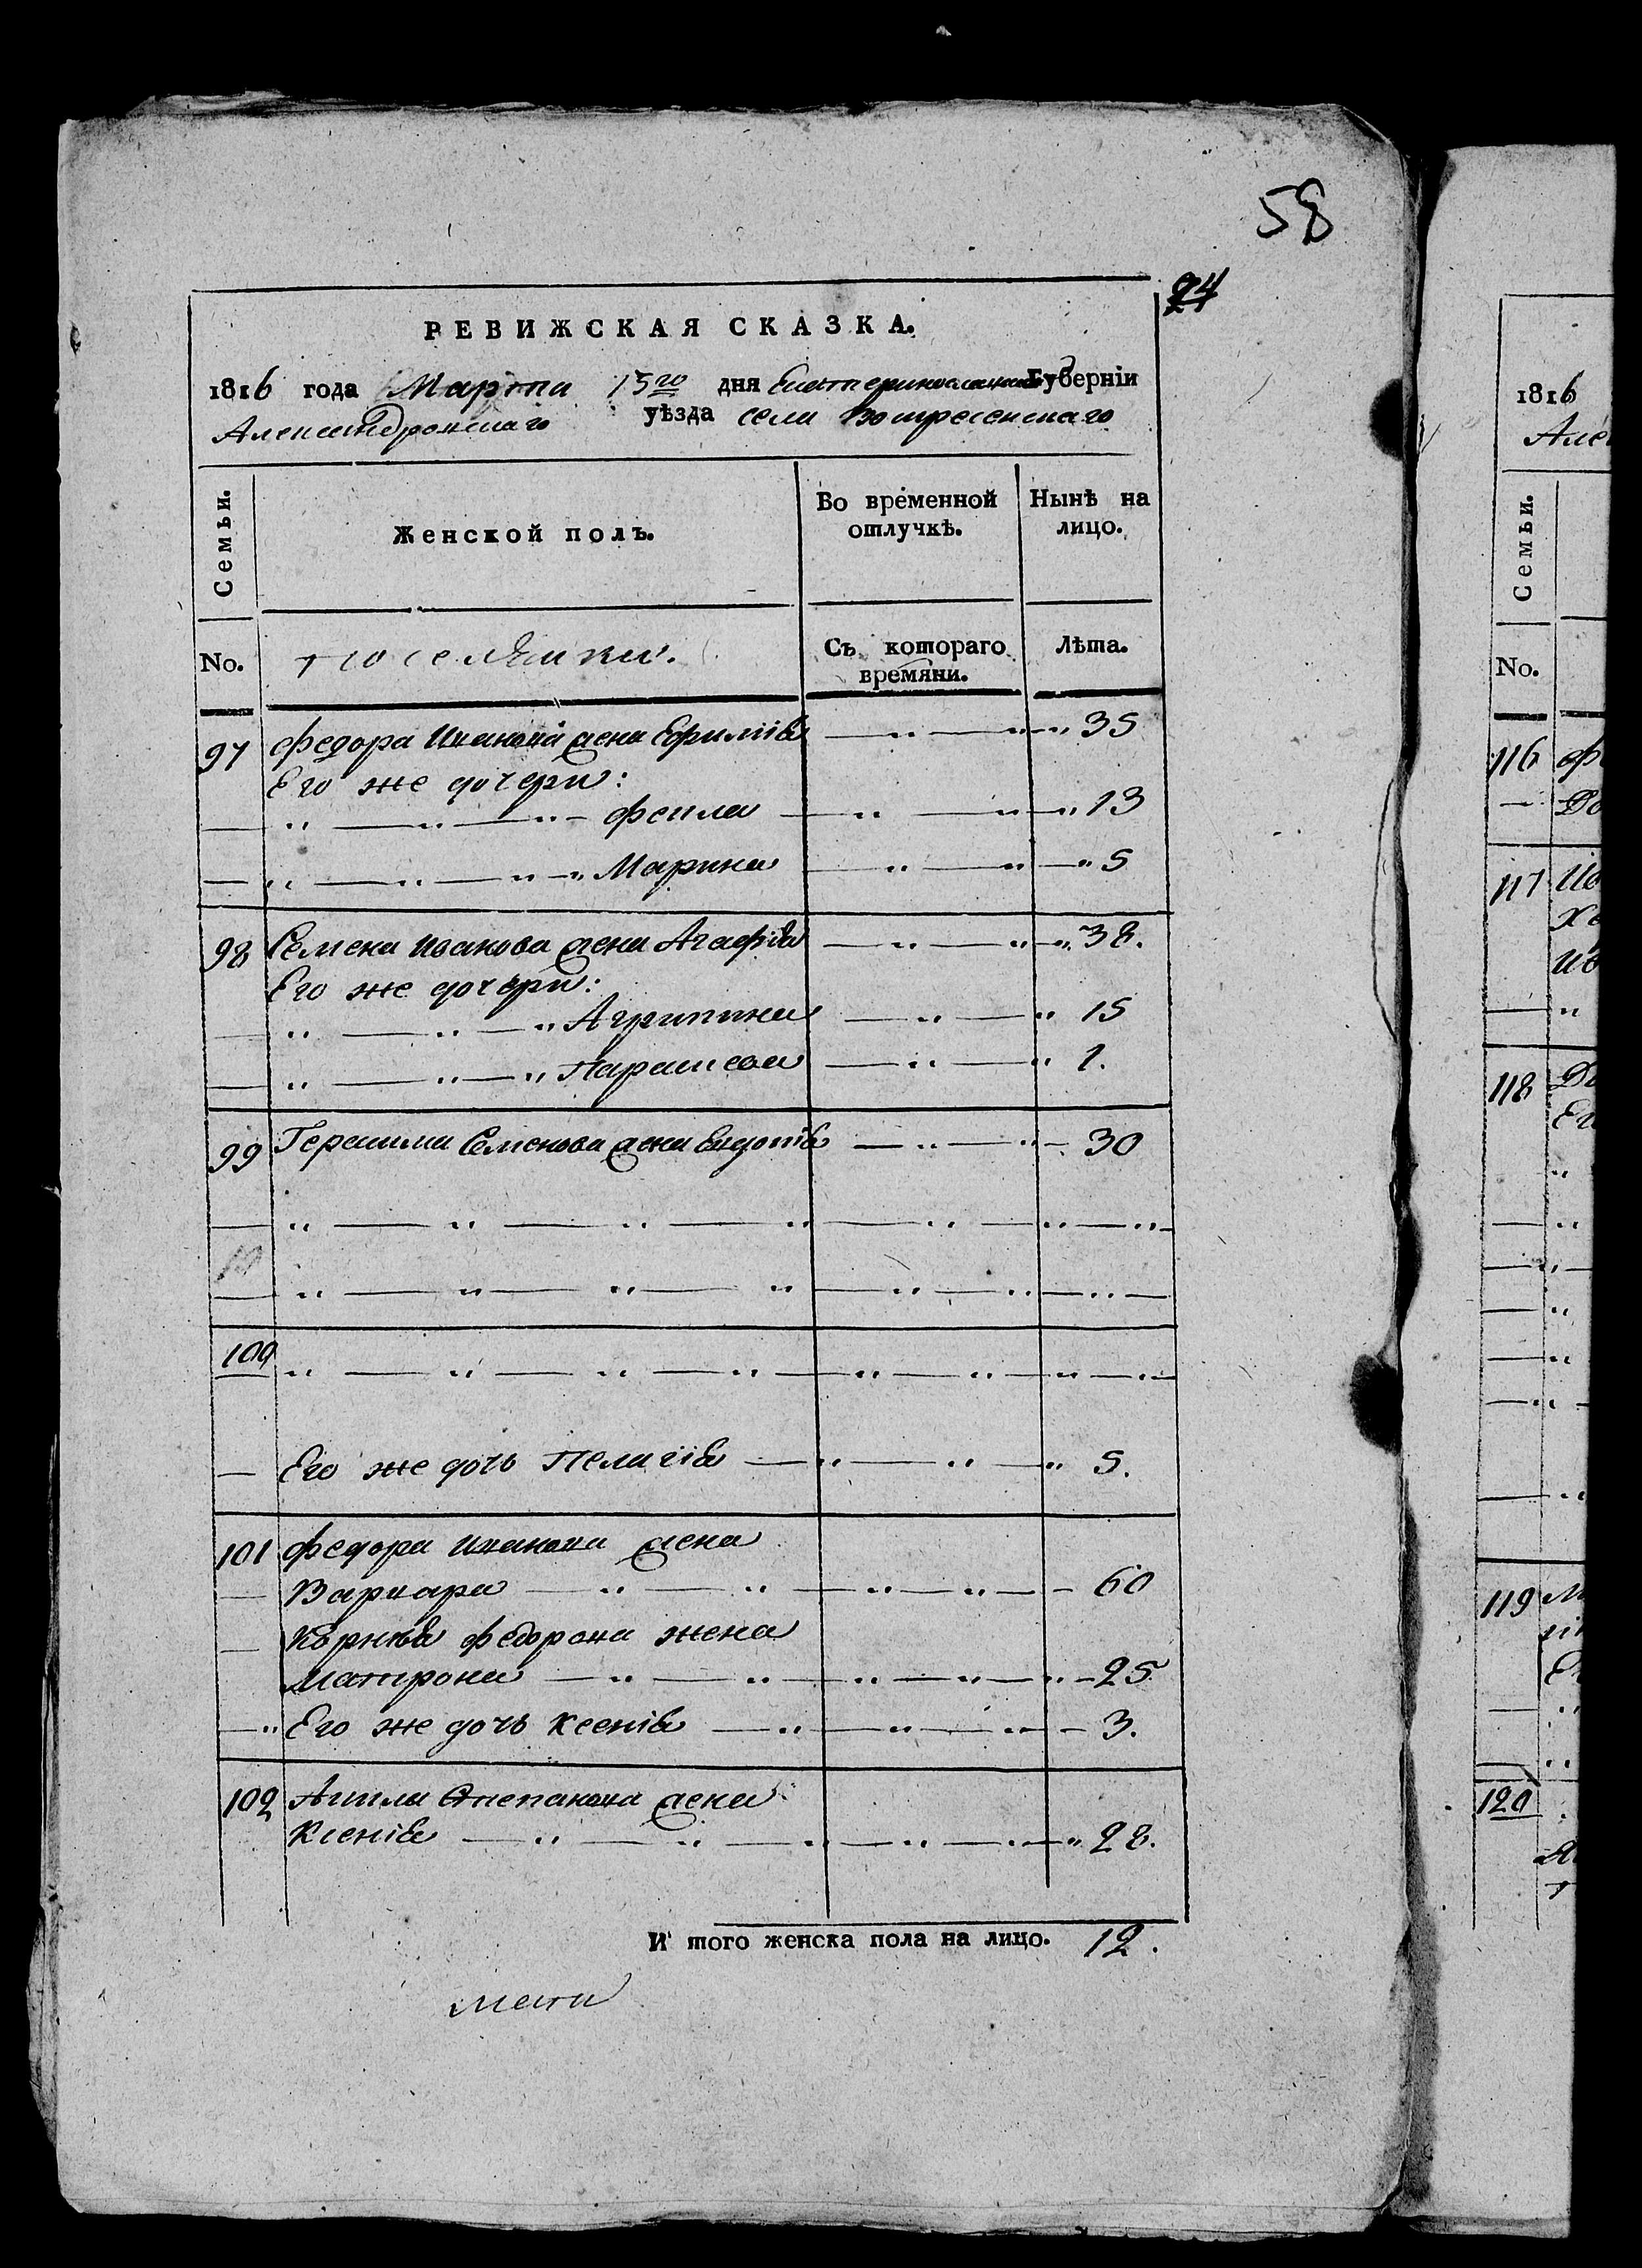 58
24
РЕВИЖСКАЯ СКАЗКА.
1816 года Марта 15го дня Екатеринославской Губерніи
Александровскаго уѣзда села Воскресенскаго
Семьи. Женской полъ. Во временной отлучкѣ. Нынѣ на лицо.
No. поселянки. Съ котораго времяни. Лѣта.
97 Федора Иванова жена Ефимія — „ — „ — „ 35
Его же дочери:
— „ — „ — „ — Фекла — „ — „ — „ 13
— „ — „ — „ — „ Марина — „ — „ — „ 5
98 Семена Иванова жена Агафія — „ — „ — „ 38.
Его же дочери:
— „ — „ — „ Агрипина — „ — „ 15
— „ — „ — „ Параскева — „ — „ 1.
99 Герасима Семенова жена Евдокія — „ — „ — 30
— „ — „ — „ — „ — „ — „ — „ —
— „ — „ — „ — „ — „ — „ — „ —
100 „ — „ — „ — „ — „ — „ — „ — „ —
— Его же дочь Пелагія — „ — „ — „ 5.
101 Федора Иванова жена
— Варвара — „ — „ — „ — „ — — 60
— Корнѣя Федорова жена
Матрона — „ — „ — „ — „ — „ — 25
— „ Его же дочь Ксенія — „ — „ — „ — 3.
102 Степанова жена
Ксенія — „ — „ — „ — „ — „ — „ 28.
И того женска пола на лицо. 12.
1816
Семьи.
No.
116
117
118
119
120